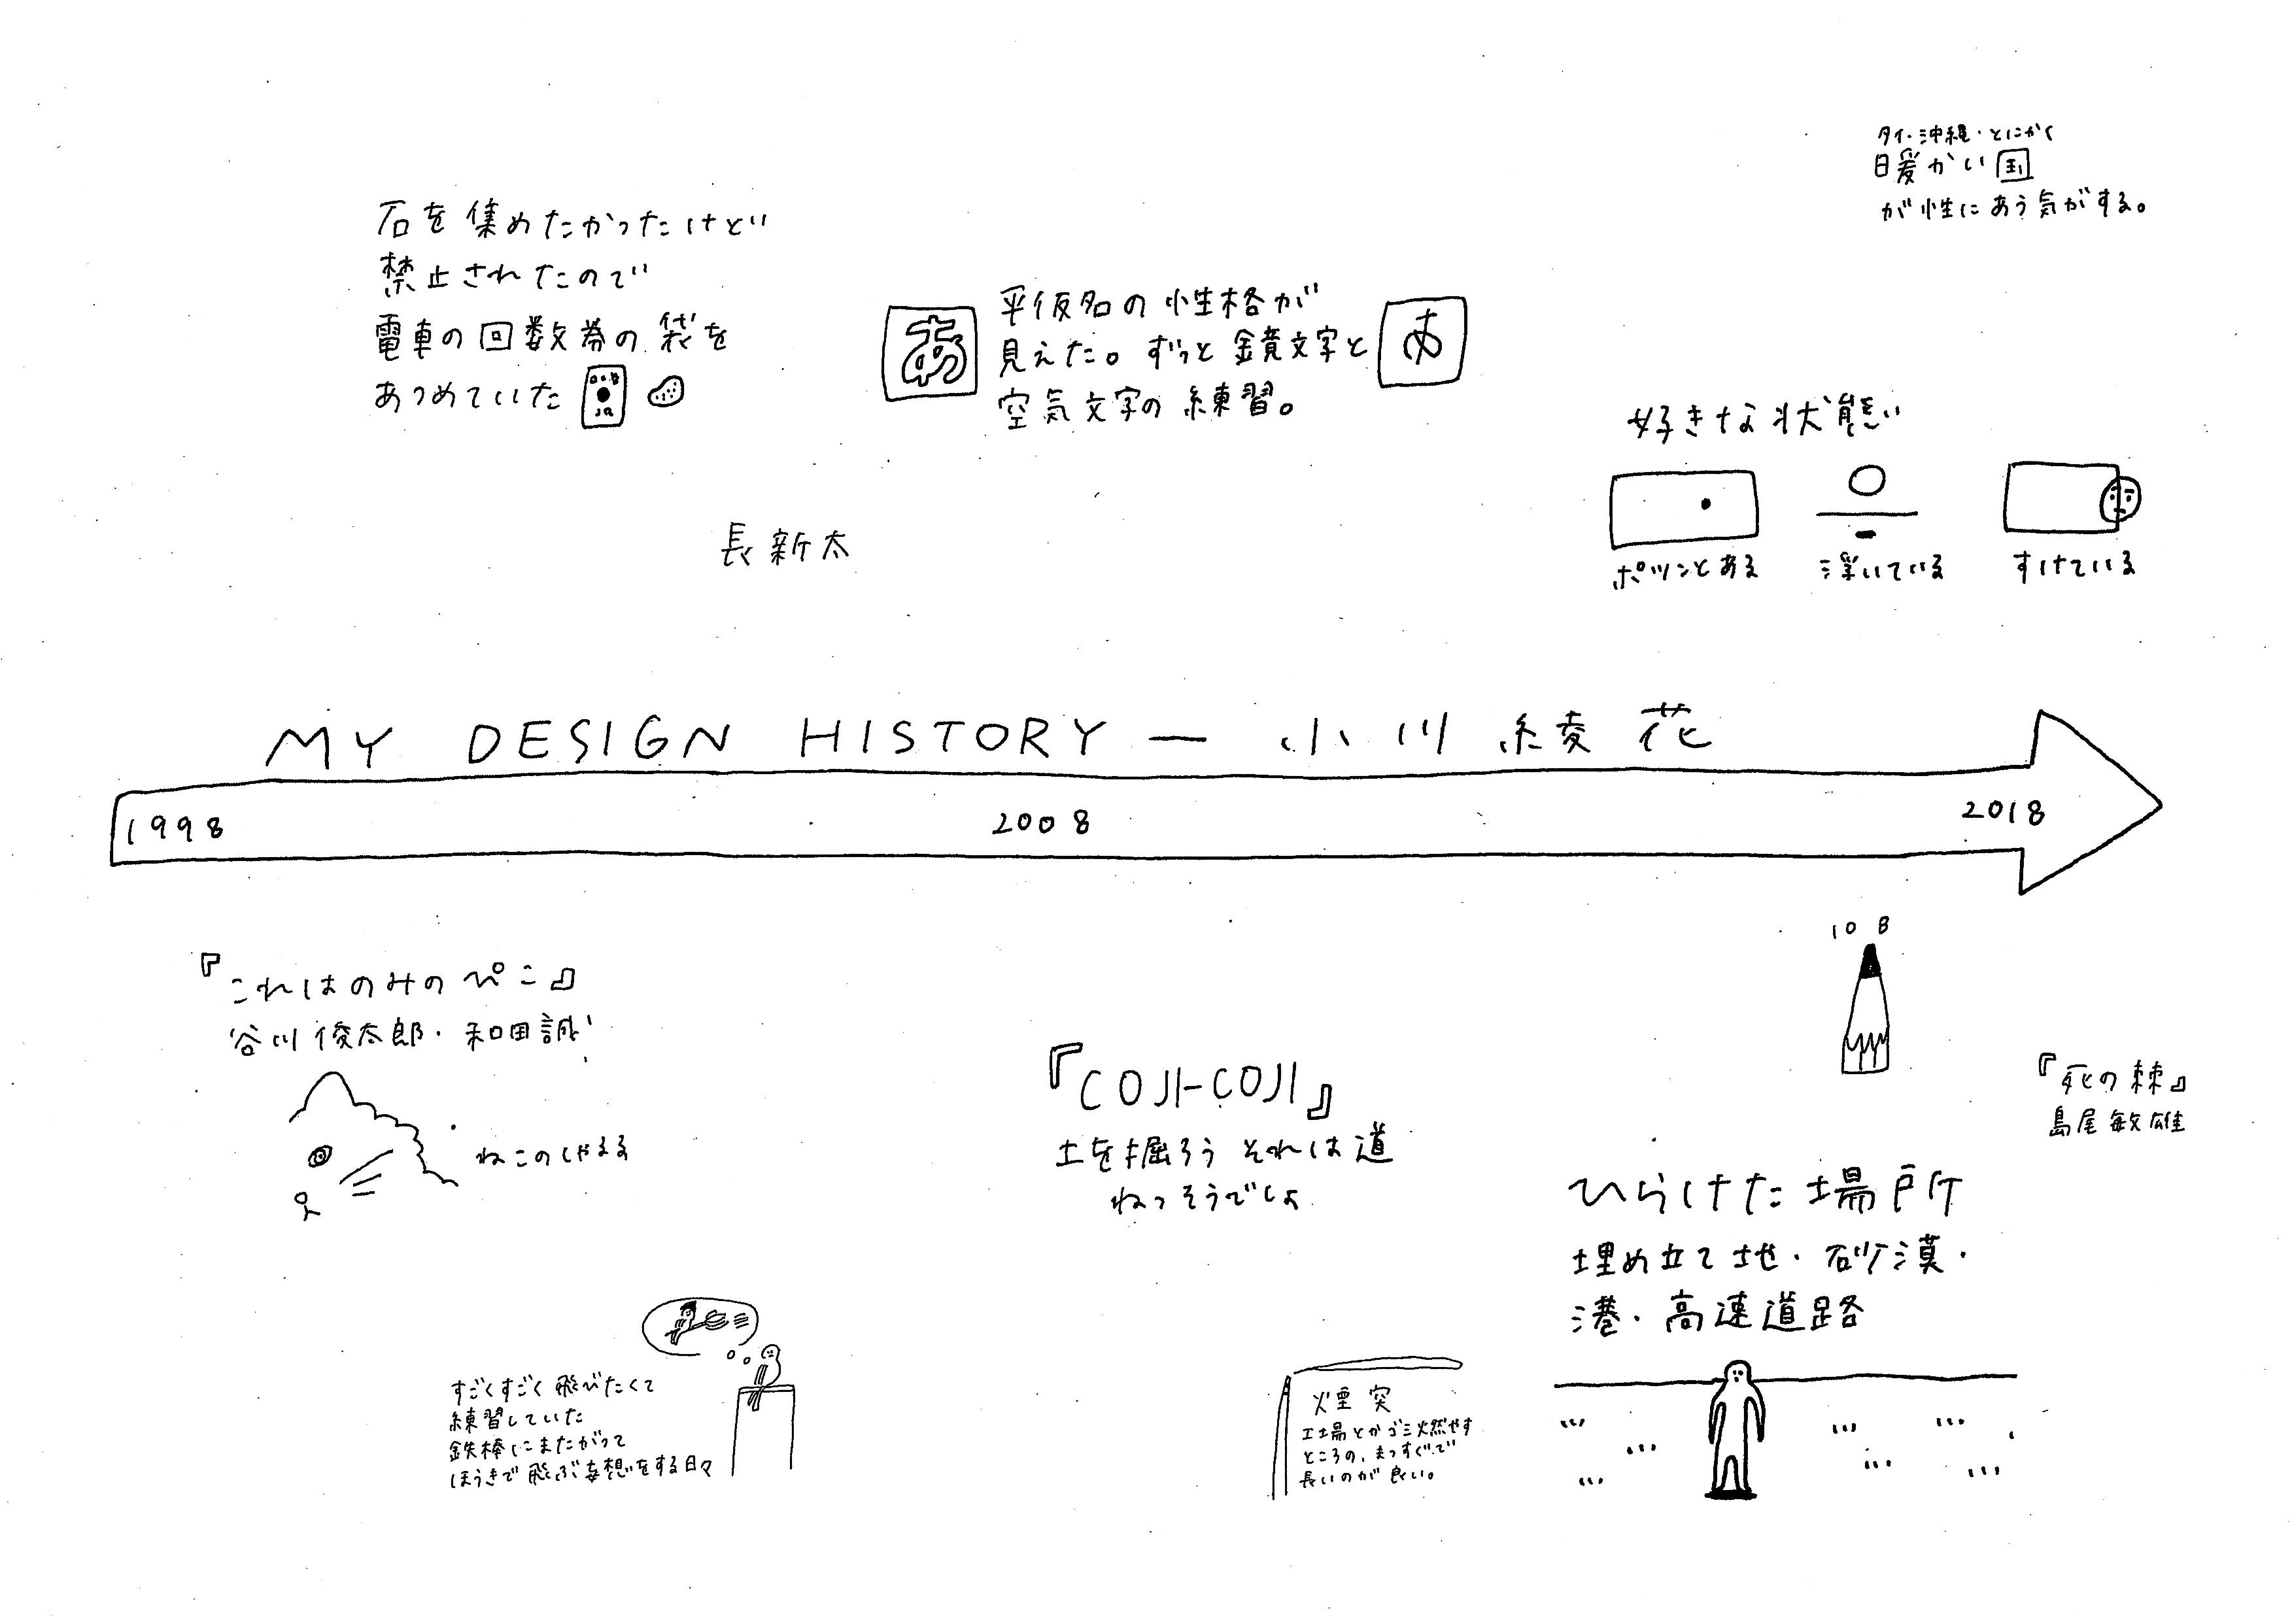 タイ・沖縄・とにかく
暖かい国
が性にあう気がする。
石を集めたかったけど
禁止されたので
電車の回数券の袋を
あつめていた
JR
あ
平仮名の性格が
見えた。ずっと鏡文字と
空気文字の練習。
あ
好きな状態
ポツンとある
浮いている
すけている
長新太
MY DESIGN HISTORY — 小川綾花
1998
2008
2018
『これはのみのぴこ』
谷川俊太郎・和田誠
ねこのしゃるる
10B
『COJI-COJI』
土を掘ろう それは道
ねっそうでしょ
『死の棘』
島尾敏雄
ひらけた場所
埋め立て地・砂漠・
港・高速道路
すごくすごく飛びたくて
練習していた
鉄棒にまたがって
ほうきで飛ぶ妄想をする日々
煙突
工場とかゴミ燃やす
ところの、まっすぐで
長いのが良い。